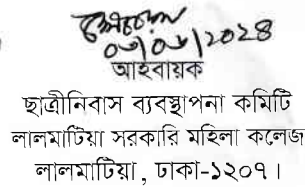 ০৩/০৬/২০২৪
আহবায়ক
ছাত্রীনিবাস ব্যবস্থাপনা কমিটি
লালমাটিয়া সরকারি মহিলা কলেজ
লালমাটিয়া, ঢাকা-১২০৭।